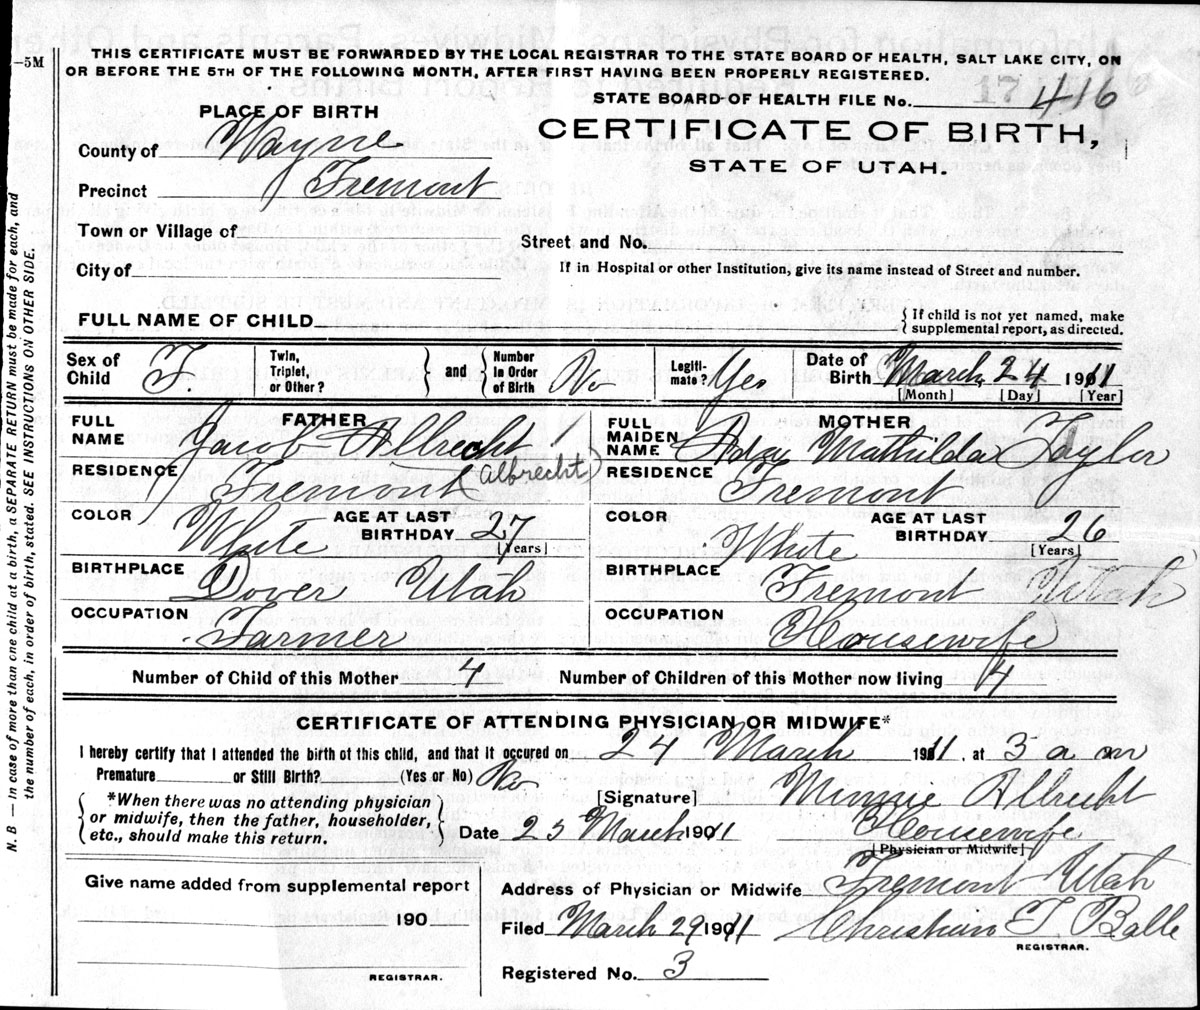 —5M
THIS CERTIFICATE MUST BE FORWARDED BY THE LOCAL REGISTRAR TO THE STATE BOARD OF HEALTH, SALT LAKE CITY, ON
OR BEFORE THE 5TH OF THE FOLLOWING MONTH, AFTER FIRST HAVING BEEN PROPERLY REGISTERED.
STATE BOARD OF HEALTH FILE No. 17 446
PLACE OF BIRTH
CERTIFICATE OF BIRTH,
STATE OF UTAH.
County of Wayne
Precinct Fremont
Town or Village of
Street and No.
City of
If in Hospital or other Institution, give its name instead of Street and number.
FULL NAME OF CHILD
{ If child is not yet named, make
supplemental report, as directed.
Sex of Child F.
Twin, Triplet, or Other? } and { Number in Order of Birth No
Legiti-mate? Yes
Date of Birth March 24 1911
[Month] [Day] [Year]
FATHER
FULL NAME Jacob Albrecht
(Albrecht)
RESIDENCE Fremont
COLOR White AGE AT LAST BIRTHDAY 27
[Years]
BIRTHPLACE Dover Utah
OCCUPATION Farmer
MOTHER
FULL MAIDEN NAME Mathilda Taylor
RESIDENCE Fremont
COLOR White AGE AT LAST BIRTHDAY 26
[Years]
BIRTHPLACE Fremont Utah
OCCUPATION Housewife
Number of Child of this Mother 4 Number of Children of this Mother now living 4
CERTIFICATE OF ATTENDING PHYSICIAN OR MIDWIFE*
I hereby certify that I attended the birth of this child, and that it occured on 24 March 1911, at 3 a m
Premature or Still Birth? (Yes or No) No
*When there was no attending physician
or midwife, then the father, householder,
etc., should make this return.
[Signature] Minnie Albrecht
Date 25 March 1911 Housewife
[Physician or Midwife]
Give name added from supplemental report
190
REGISTRAR.
Address of Physician or Midwife Fremont Utah
Filed March 29 1911 Christian T Balle
REGISTRAR.
Registered No. 3
N. B — In case of more than one child at a birth, a SEPARATE RETURN must be made for each, and
the number of each, in order of birth, stated. SEE INSTRUCTIONS ON OTHER SIDE.